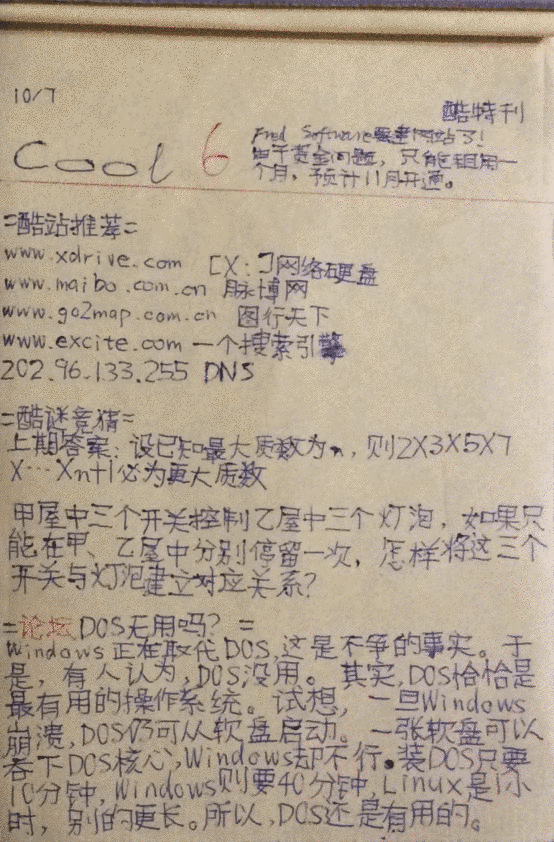 10/7
酷特刊
Cool 6
Fred Software要建网站了!
由于资金问题, 只能租用一
个月, 预计11月开通。
=酷站推荐=
www.xdrive.com [X:]网络硬盘
www.maibo.com.cn 脉博网
www.go2map.com.cn 图行天下
www.excite.com 一个搜索引擎
202.96.133.255 DNS
=酷谜竞猜=
上期答案: 设已知最大质数为n, 则2X3X5X7
X…Xn+1必为更大质数
甲屋中三个开关控制乙屋中三个灯泡, 如果只
能在甲、乙屋中分别停留一次, 怎样将这三个
开关与灯泡建立对应关系?
=论坛 DOS无用吗? =
Windows正在取代DOS,这是不争的事实。于
是, 有人认为, DOS没用。其实, DOS恰恰是
最有用的操作系统。试想, 一旦Windows
崩溃, DOS仍可从软盘启动。一张软盘可以
吞下DOS核心, Windows却不行。装DOS只要
10分钟, Windows则要40分钟, Linux是1小
时, 别的更长。所以, DOS还是有用的。